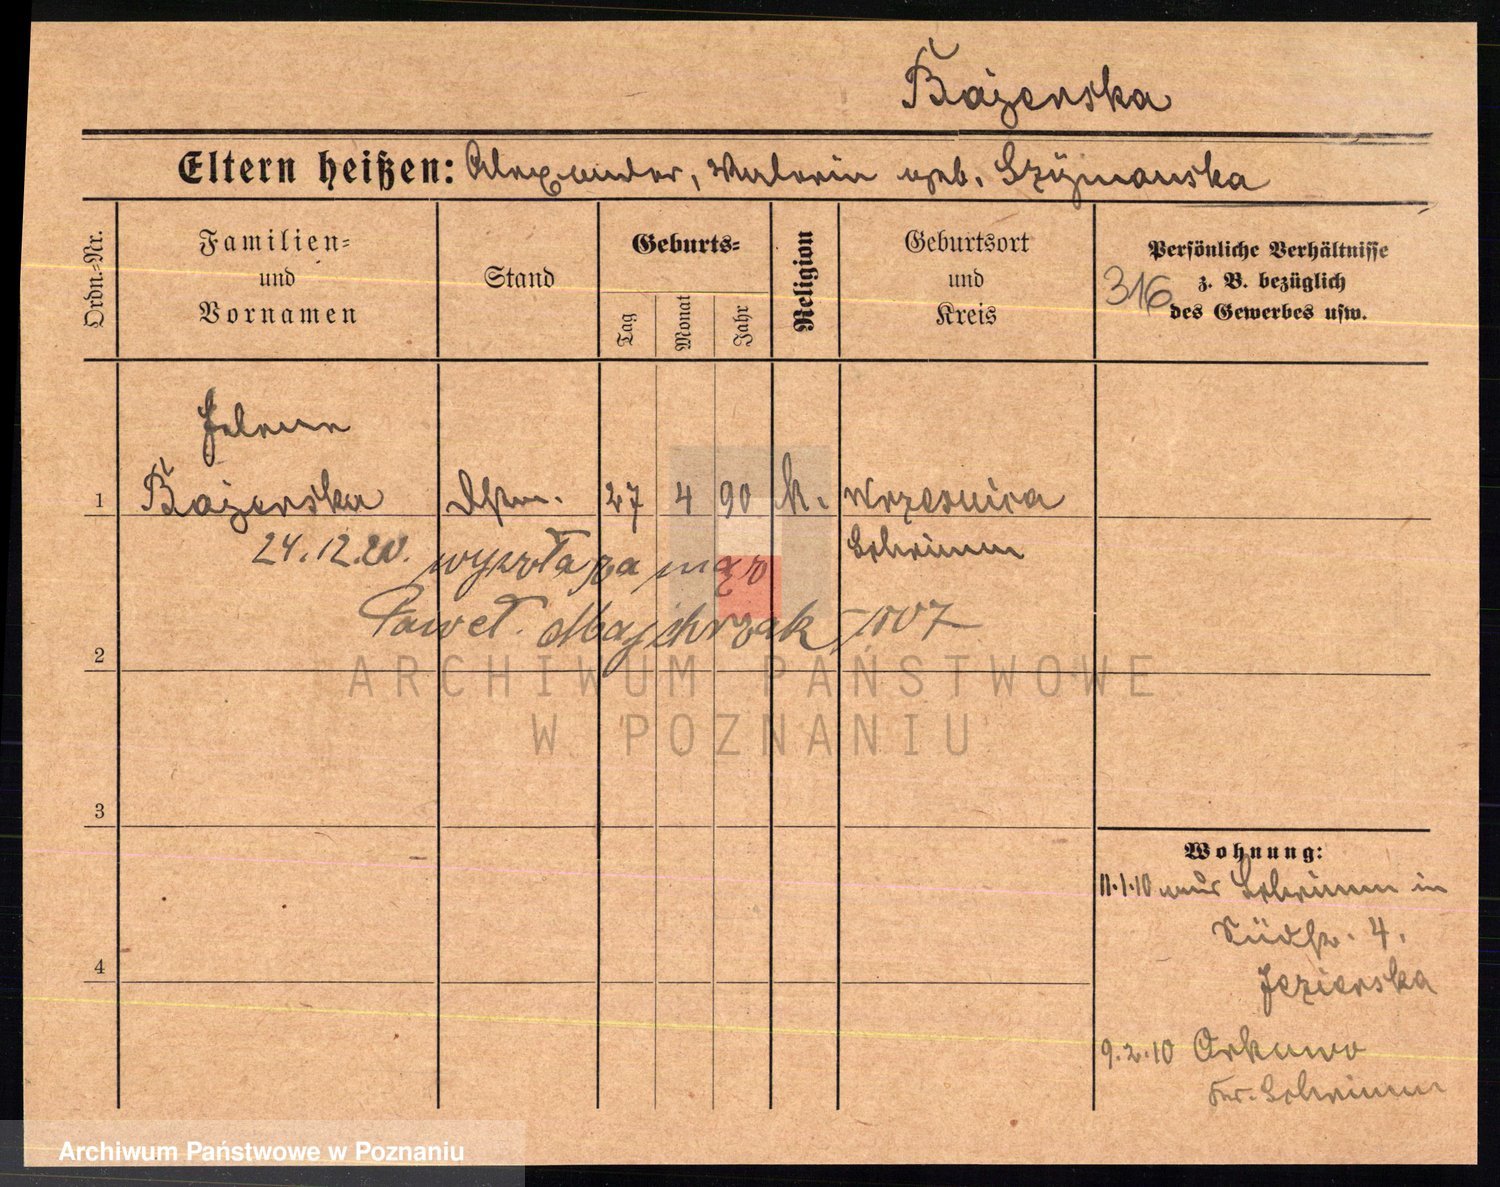 Bażenska
Eltern heißen: Alexander, Valerie geb. Szymanska
Ordn.-Nr.
Familien-
und
Vornamen
Stand
Geburts-
Tag
Monat
Jahr
Religion
Geburtsort
und
Kreis
Persönliche Verhältnisse
z. B. bezüglich
des Gewerbes usw.
316
Helene
1 Bażenska Dstm. 27 4 90 k. Wrzesnica
Schrimm
24.12.20. wyszła za mąż
Paweł Majchrzak
2
3
4
Wohnung:
11.1.10 aus Schrimm in
Südstr. 4.
Jezierska
9.2.10 Orkowo
Kr. Schrimm
ARCHIWUM PAŃSTWOWE
W POZNANIU
Archiwum Państwowe w Poznaniu